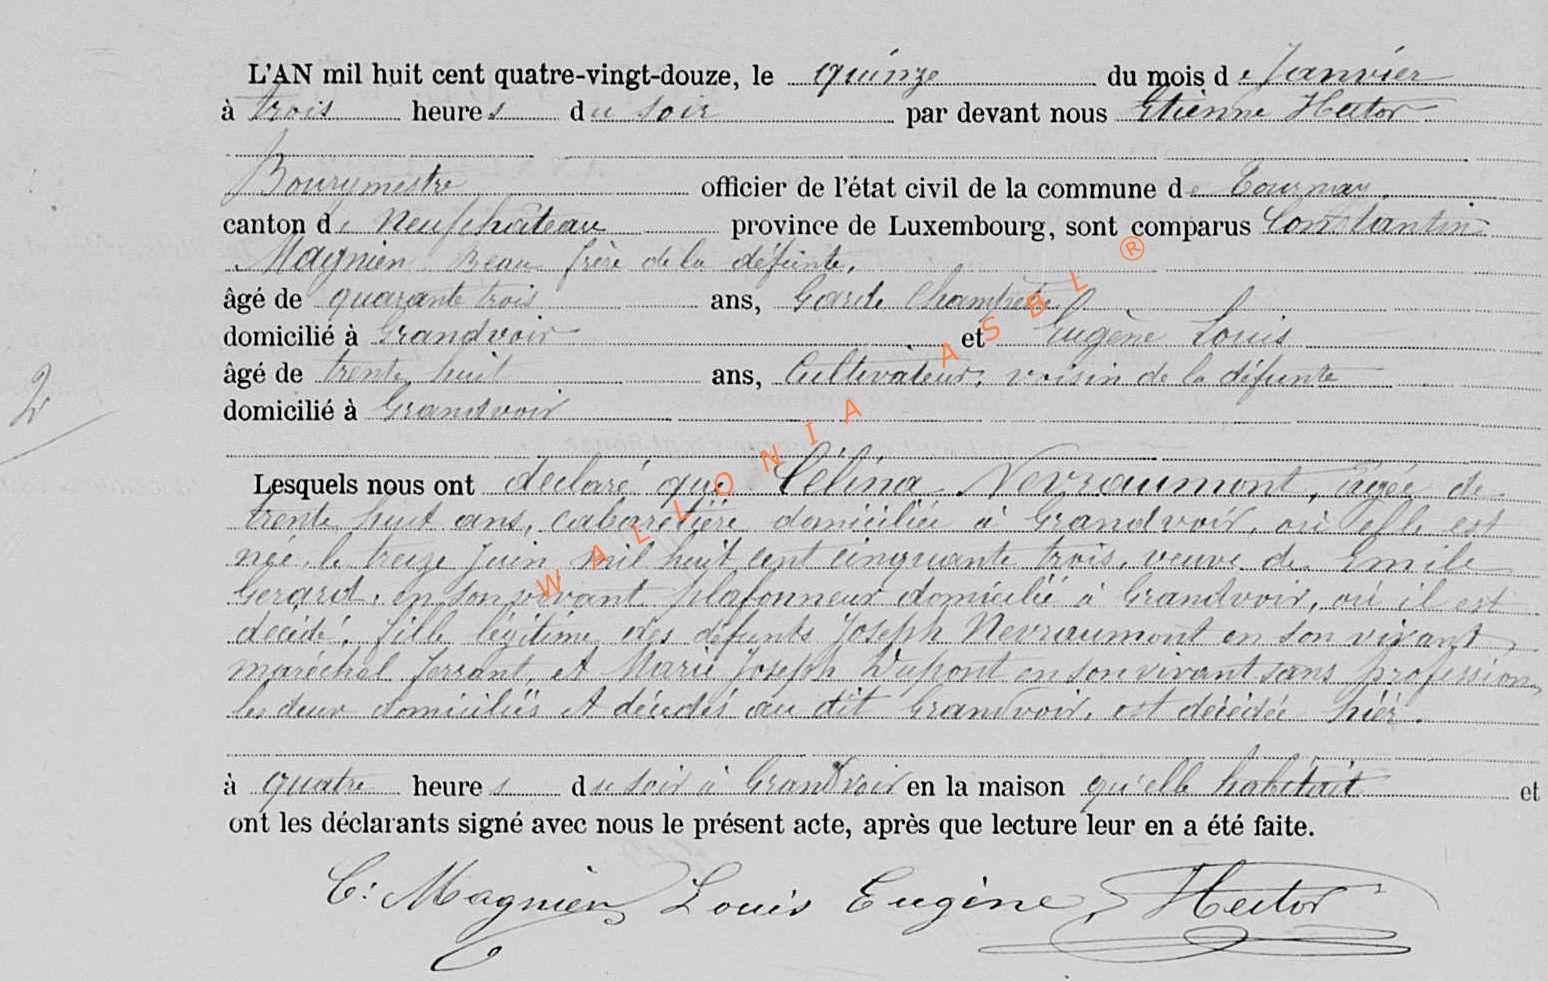 L'AN mil huit cent quatre-vingt-douze, le quinze du mois de Janvier
à trois heures du soir par devant nous Etienne Hector
Bourgmestre officier de l'état civil de la commune de Tournay.
canton de Neufchâteau province de Luxembourg, sont comparus Constantin
Magnien Beau frère de la défunte,
âgé de quarante trois ans, Garde Champêtre
domicilié à Grandvoir et Eugène Louis
âgé de trente huit ans, Cultivateur, voisin de la défunte
domicilié à Grandvoir
2
Lesquels nous ont déclaré que Célina Nevraumont, âgée de
trente huit ans, cabaretière domiciliée à Grandvoir, où elle est
née, le treize Juin mil huit cent cinquante trois, veuve de Emile
Gerard, en son vivant plafonneur domicilié à Grandvoir, où il est
décédé, fille légitime des défunts Joseph Nevraumont en son vivant
maréchal ferrant, et Marie Joseph Dupont en son vivant sans profession
les deux domiciliés et décédés au dit Grandvoir, est décédée hier.
à quatre heures du soir à Grandvoir en la maison qu'elle habitait et
ont les déclarants signé avec nous le présent acte, après que lecture leur en a été faite.
C: Magnien Louis Eugène Hector
WALLONIA ASBL ®